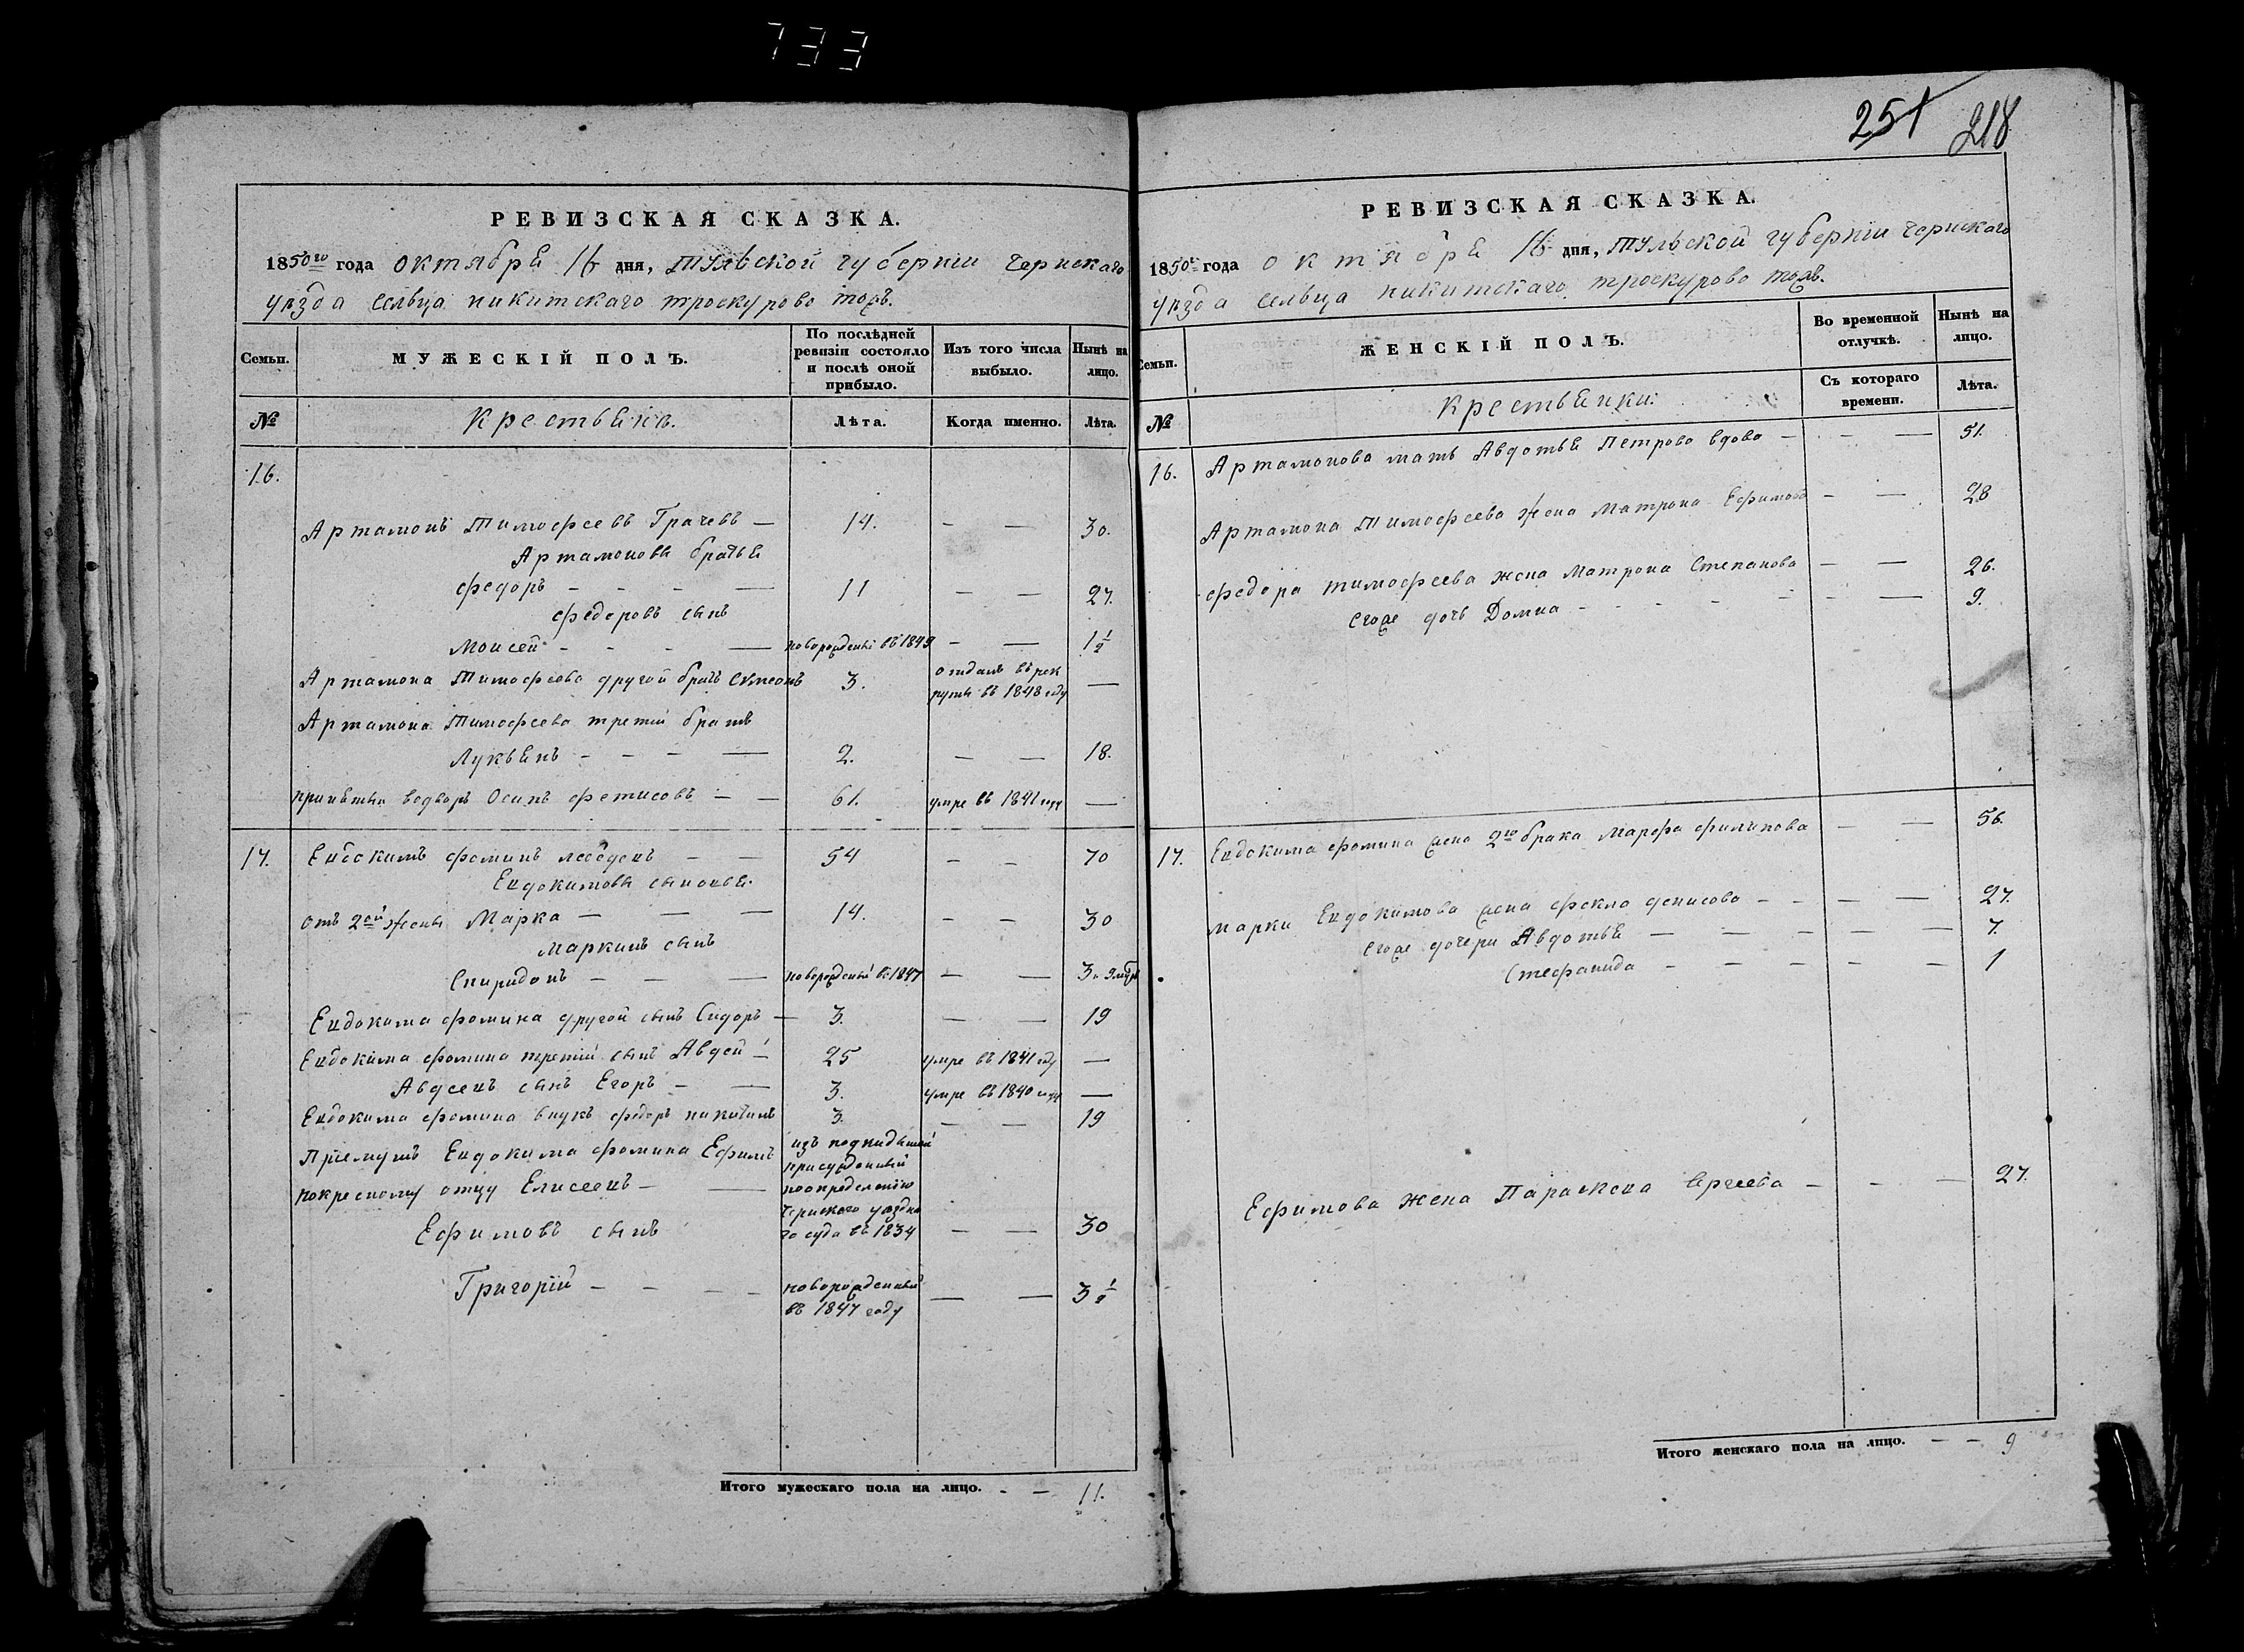 733
РЕВИЗСКАЯ СКАЗКА.
1850го года октября 16 дня, Тульской губерніи Чернскаго
уѣзда сельца никитскаго троскурово тожъ.
Семьи.
МУЖЕСКІЙ ПОЛЪ.
По послѣдней ревизіи состояло и послѣ оной прибыло.
Изъ того числа выбыло.
Нынѣ на лицо.
№
Крестьянъ.
Лѣта.
Когда именно.
Лѣта.
16.
Артамонъ Тимофеевъ Грачевъ — 14. — — 30.
Артамоновы братья
федоръ — — — — 11 — — 27.
федоровъ сынъ
Моисей — — — новорожденъ въ 1849 — — 1 1/2
Артамона Тимофеева другой братъ Семеонъ 3. отданъ въ рекруты въ 1848 году —
Артамона Тимофеева третій братъ
Лукьянъ — — — — 2. — — 18.
принятый водворъ Осипъ фетисовъ — — 61. умре въ 1841 году —
17. Евдокимъ фоминъ лебедевъ — — 54 — — 70
Евдокимовы сыновья
отъ 2ой жены Марка — — — 14. — — 30
Маркинъ сынъ
Спиридонъ — — — новорожденный въ 1847 — — 3 и 9 мѣся
Евдокима фомина другой сынъ Сидоръ — 3. — — 19
Евдокима фомина третій сынъ Авдей — 25 умре въ 1841 году —
Авдеевъ сынъ Егоръ — — 3. умре въ 1840 году —
Евдокима фомина внукъ федоръ никитинъ 3. — — 19
Пріемышъ Евдокима фомина Ефимъ
покресному отцу Елисеевъ — —
изъ подкидышей
присужденный
поопределенію
Чернскаго уѣздна
го суда въ 1834 — — 30
Ефимовъ сынъ
Григорій — — — — новорожденный
въ 1847 году — — 3 1/2
Итого мужескаго пола на лицо. — — 11.
251 218
РЕВИЗСКАЯ СКАЗКА.
1850го года октября 16 дня, Тульской губерніи Чернскаго
уѣзда сельца никитскаго троскурово тожъ.
Семьи.
ЖЕНСКІЙ ПОЛЪ.
Во временной отлучкѣ.
Нынѣ на лицо.
№
Крестьянки.
Съ котораго времени.
Лѣта.
16. Артамонова мать Авдотья Петрова вдова — — — 51.
Артамона Тимофеева жена Матрона Ефимова — — 28
федора тимофеева жена Матрона Степанова — — 26.
егоже дочь Домна — — — — — — 9.
17. Евдокима фомина жена 2го брака Марфа филипова — — 56.
Марки Евдокимова жена фекла денисова — — — — 27.
егоже дочери Авдотья — — — — — 7.
Стефанида — — — — — — 1
Ефимова жена Параскева Сергеева — — — 27.
Итого женскаго пола на лицо. — — 9